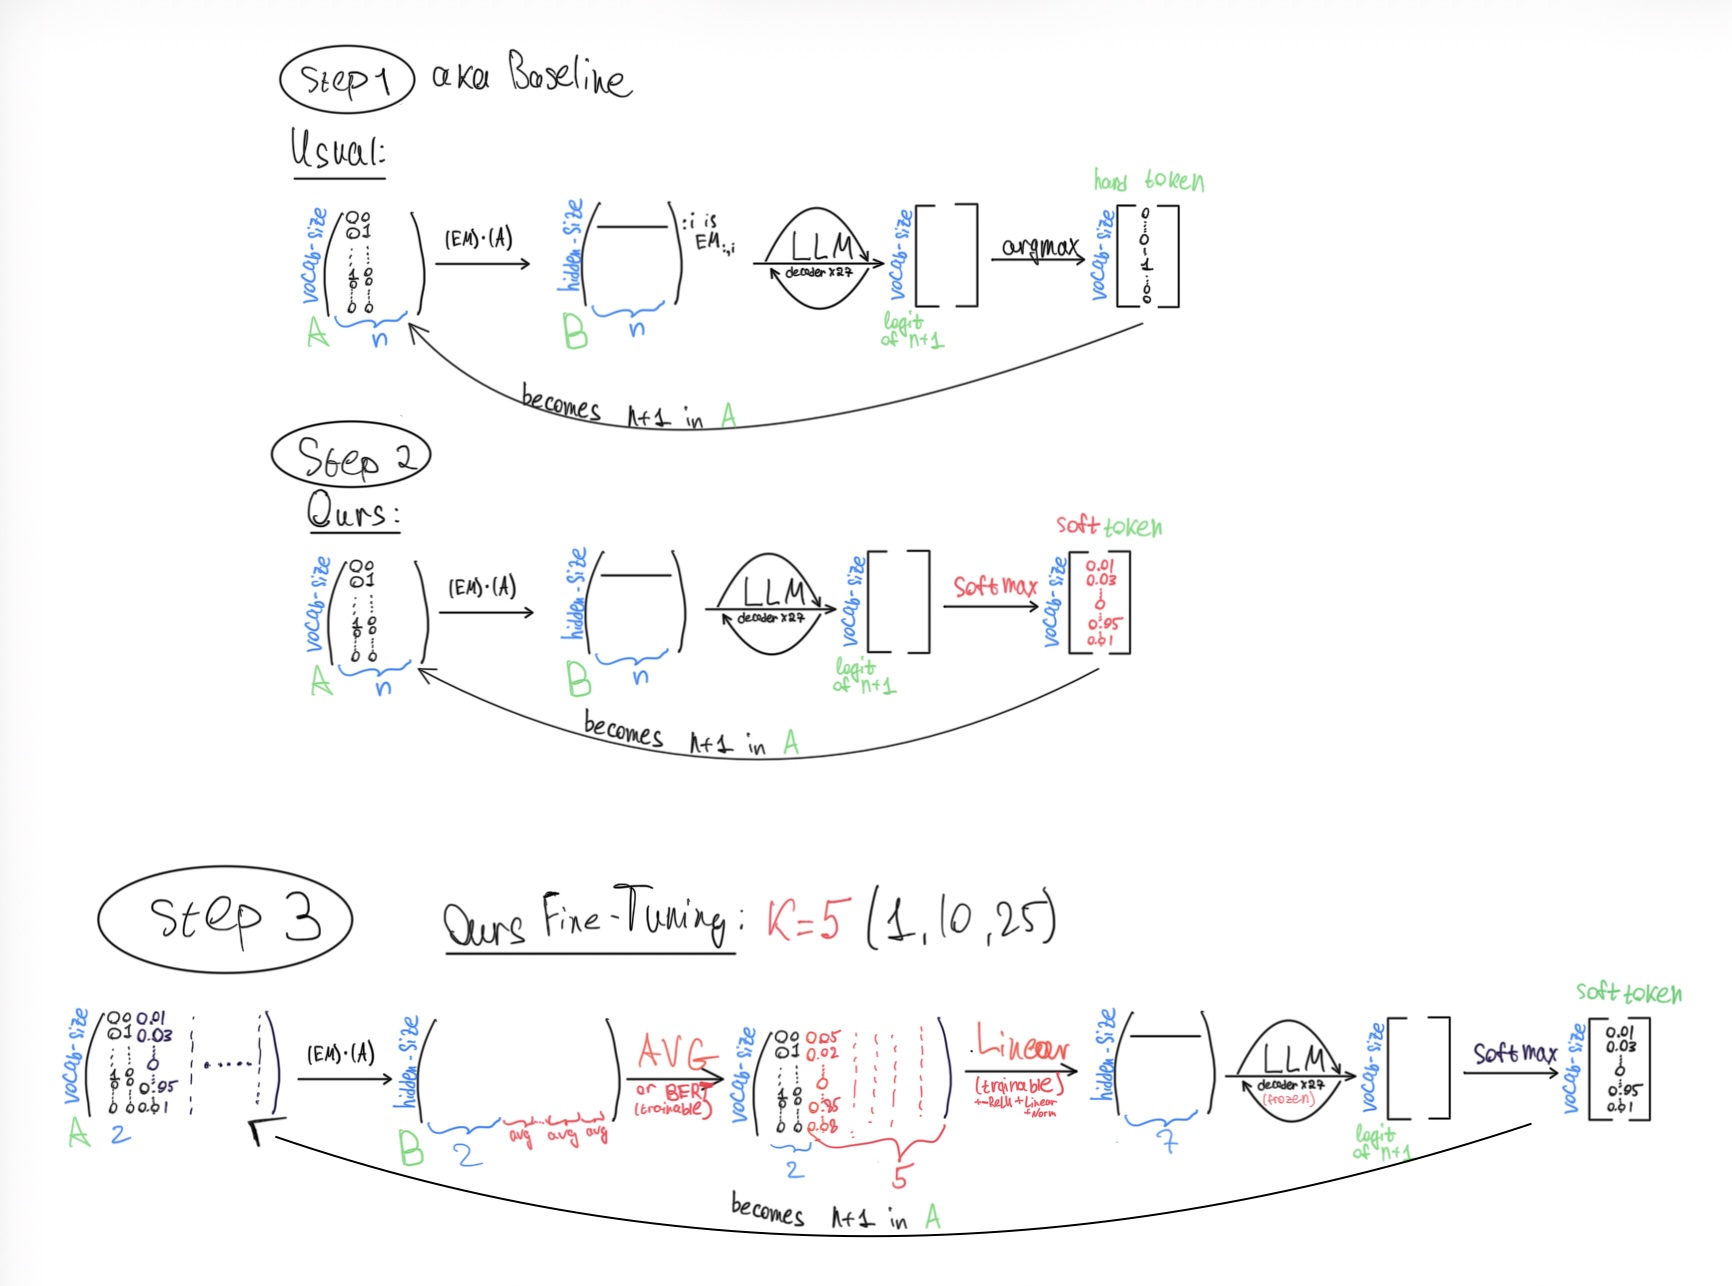 Step 1 aka Baseline
Usual:
hard token
vocab-size
0 0
0 1
1 0
0 0
0 0
A
n
(EM)·(A)
hidden-size
:i is
EM:,i
B
n
LLM
decoder x27
vocab-size
logit
of n+1
argmax
vocab-size
0
0
1
0
0
becomes n+1 in A
Step 2
Ours:
soft token
vocab-size
0 0
0 1
1 0
0 0
0 0
A
n
(EM)·(A)
hidden-size
B
n
LLM
decoder x27
vocab-size
logit
of n+1
Softmax
vocab-size
0.01
0.03
0
0.95
0.01
becomes n+1 in A
Step 3
Ours Fine-Tuning: K=5 (1, 10, 25)
soft token
vocab-size
0 0 0.01
0 1 0.03
0
1 0
0 0 0.95
0 0 0.01
A 2
(EM)·(A)
hidden-size
B 2
avg avg avg
AVG
or BERT
(trainable)
vocab-size
0 0 0.05
0 1 0.02
0
1 0
0 0 0.85
0 0 0.08
2
5
Linear
(trainable)
+ReLU+Linear
+Norm
hidden-size
7
LLM
decoder x27
(frozen)
vocab-size
logit
of n+1
Softmax
vocab-size
0.01
0.03
0
0.95
0.01
becomes n+1 in A